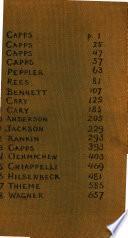 CAPPS p. 1
CAPPS 25
CAPPS 47
CAPPS 57
PEPPLER 63
REES 81
BENNETT 107
CARY 125
CARY 185
ANDERSON 205
JACKSON 229
RANKIN 293
CAPPS 393
OEHMICHEN 409
CHIAPPELLI 469
HILSENBECK 481
THIEME 585
WAGNER 657